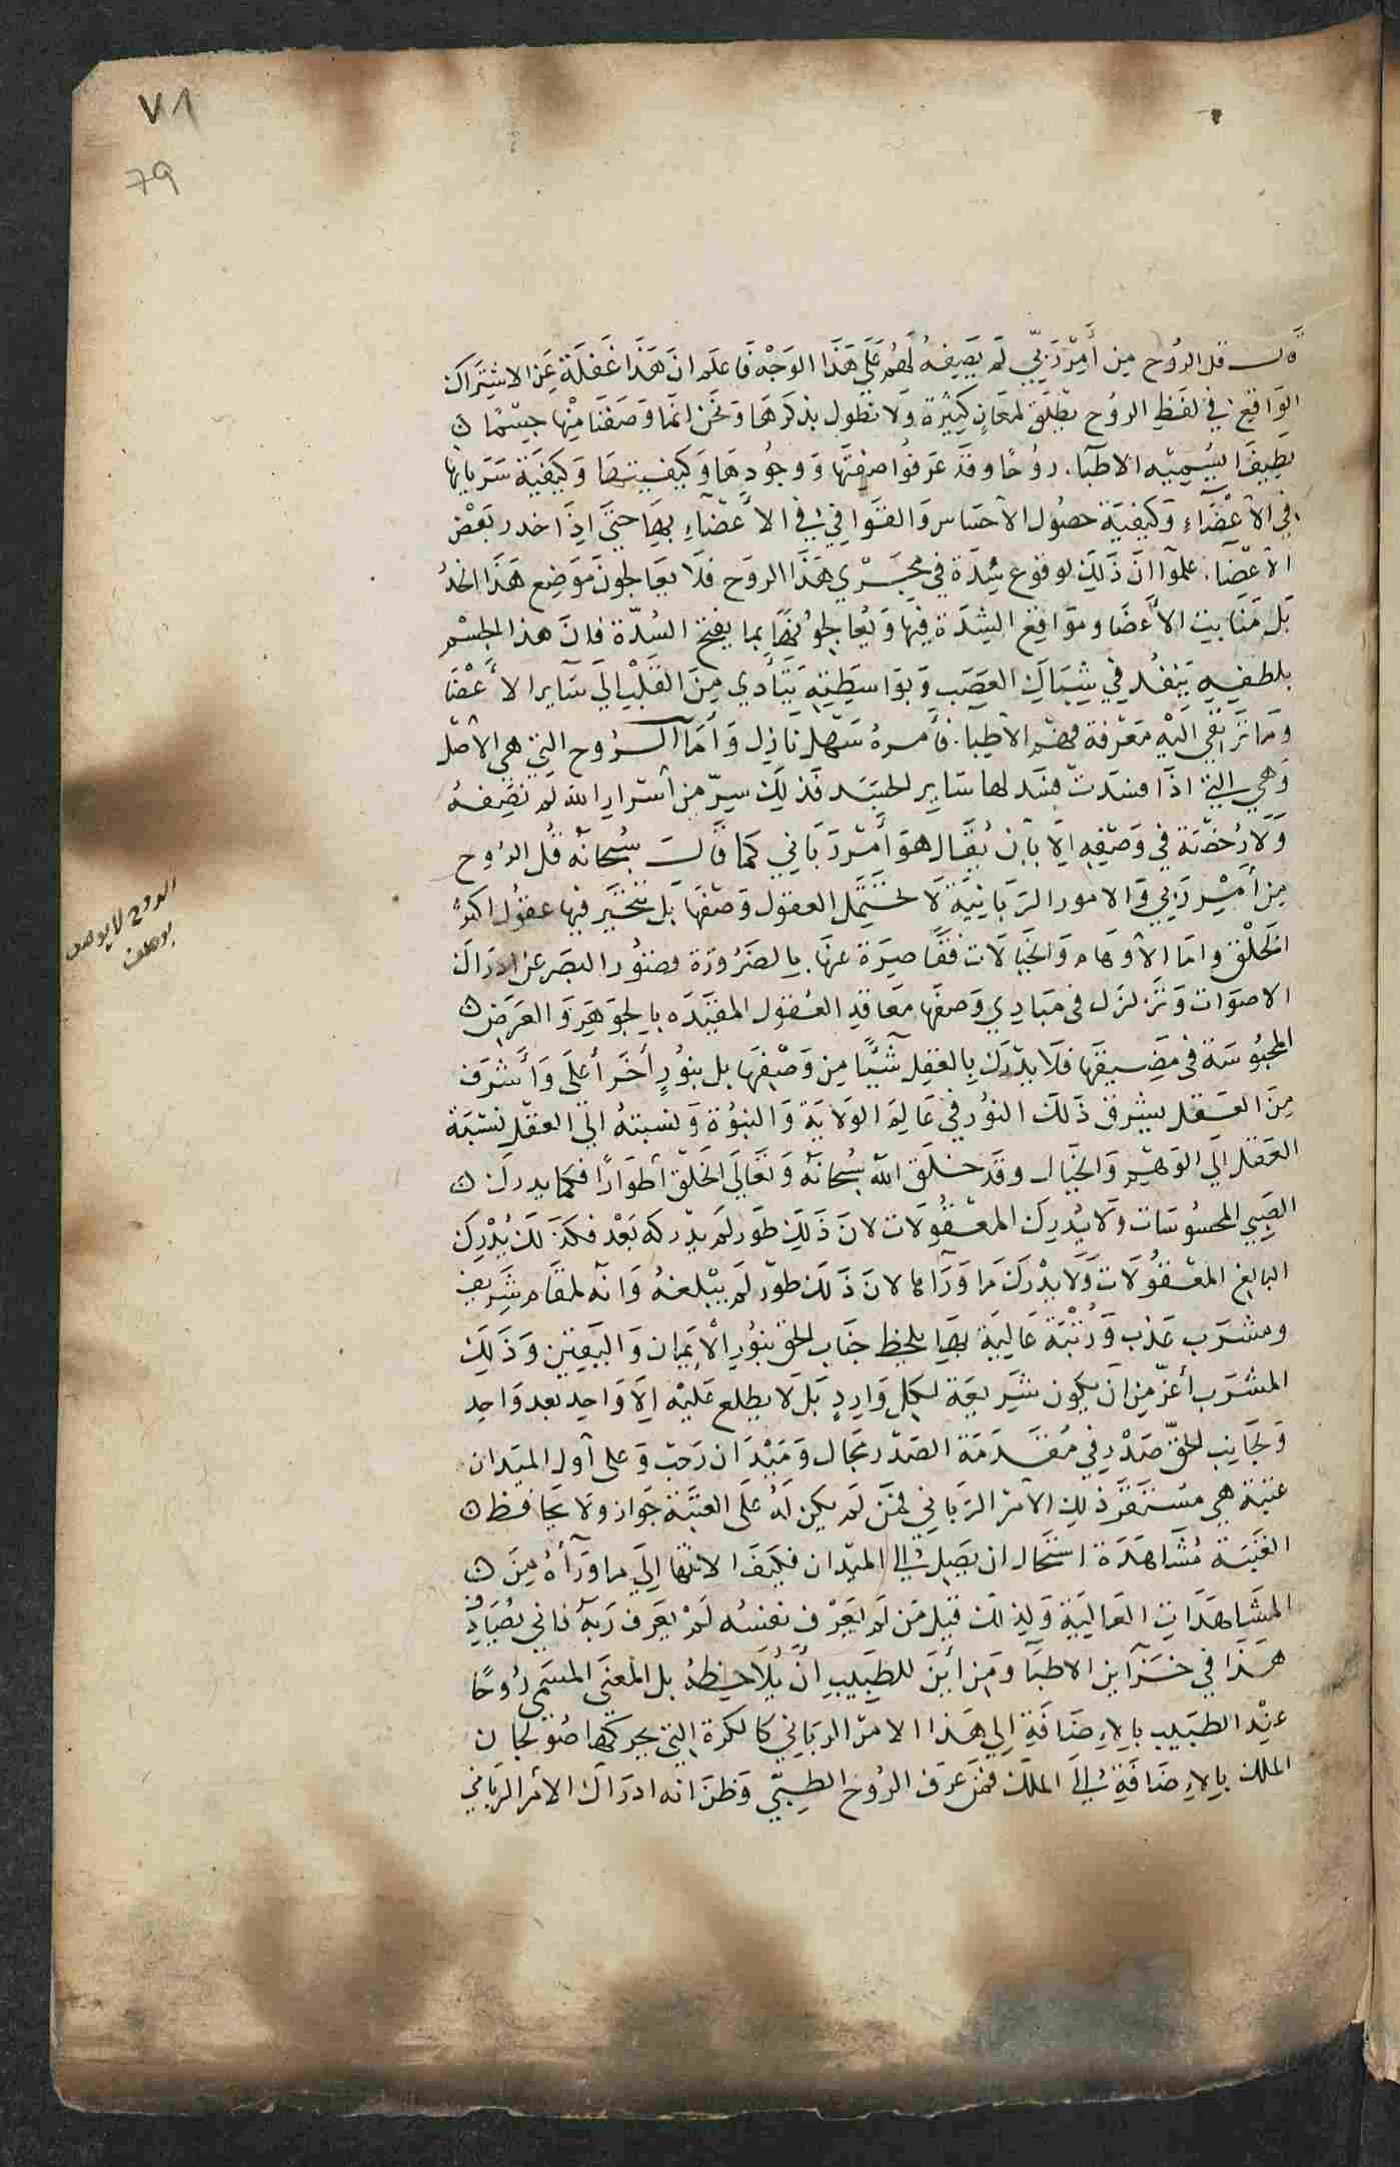 ٧٨
79
قال قل الروح من أمر ربي لم يصفه لهم علي هذا الوجه فاعلم ان هذا غفلة عن الاشتراك
الواقع في لفظ الروح يطلق لمعان كثيرة ولا نطول بذكرها ونحن انما وصفنا منها جسما
لطيفا يسميه الاطبآ روحا وقد عرفوا صفتها ووجودها وكيفيتها وكيفية سريانها
في الأعضاء وكيفية حصول الاحساس والقوا في الأعضآء بها حتى اذا خدر بعض
الأعضآ علموا ان ذلك لوقوع شدة في مجري هذا الروح فلا يعالجون موضع هذا الخدر
بل منابت الأعضا ومواقع الشدة فيها ويعالجونها بما يفتح السدة فان هذا الجسم
بلطفه ينفذ في شباك العصب وبواسطته يتأدي من القلب الي سآير الأعضا
وما ترتقي اليه معرفة فهم الأطبا فأمره سهل نازل وأمآ الروح التي هي الاصل
وهي التي اذا فسدت فسد لها ساير الجسد فذلك سر من أسرار الله لم نصفه
ولا رخصة في وصفه الا بأن يقال هو أمر رباني كما قال سبحانه قل الروح
من أمر ربي والامور الربانية لا تحتمل العقول وصفها بل تتحير فيها عقول اكثر
الخلق واما الأوهام والخيالات فقاصرة عنها بالضرورة قصور البصر عن ادراك
الاصوات وتزلزل في مبادي وصفها معاقد العقول المقيدة بالجوهر والعرض
المحبوسة في مضيقها فلا يدرك بالعقل شيئا من وصفها بل بنور أخر أعلى وأشرف
من العقل يشرق ذلك النور في عالم الولاية والنبوة ونسبته الي العقل نسبة
العقل الي الوهم والخيال وقد خلق الله سبحانه وتعالي الخلق أطوارا فكما يدرك
الصبي المحسوسات ولا يدرك المعقولات لان ذلك طور لم يدركه بعد فكذلك يدرك
البالغ المعقولات ولا يدرك ما ورآها لان ذلك طور لم يبلغه وانه لمقام شريف
ومشرب عذب ورتبة عالية بها يلحظ جناب الحق بنور الإيمان واليقين وذلك
المشرب أعز من ان يكون شريعة لكل وارد بل لا يطلع عليه الا واحد بعد واحد
ولجانب الحق صدر في مقدمة الصدر مجال وميدان رحب وعلى أول الميدان
عتبة هي مستقر ذلك الامر الرباني فمن لم يكن له على العتبة جواز ولا لحافظ
العتبة مشاهدة استحال ان يصل الي الميدان فكيف الانتها الي ما ورآه من
المشاهدات العالية ولذلك قيل من لم يعرف نفسه لم يعرف ربه فاني يصادف
هذا في خزآين الاطبآ ومن أين للطبيب ان يلاحظه بل المعنى المسمى روحا
عند الطبيب بالإضافة الي هذا الامر الرباني كالكرة التي يحركها صولجان
الملك بالإضافة الي الملك فمن عرف الروح الطبي وظن انه ادراك الأمر الرباني
الروح لا يوصف